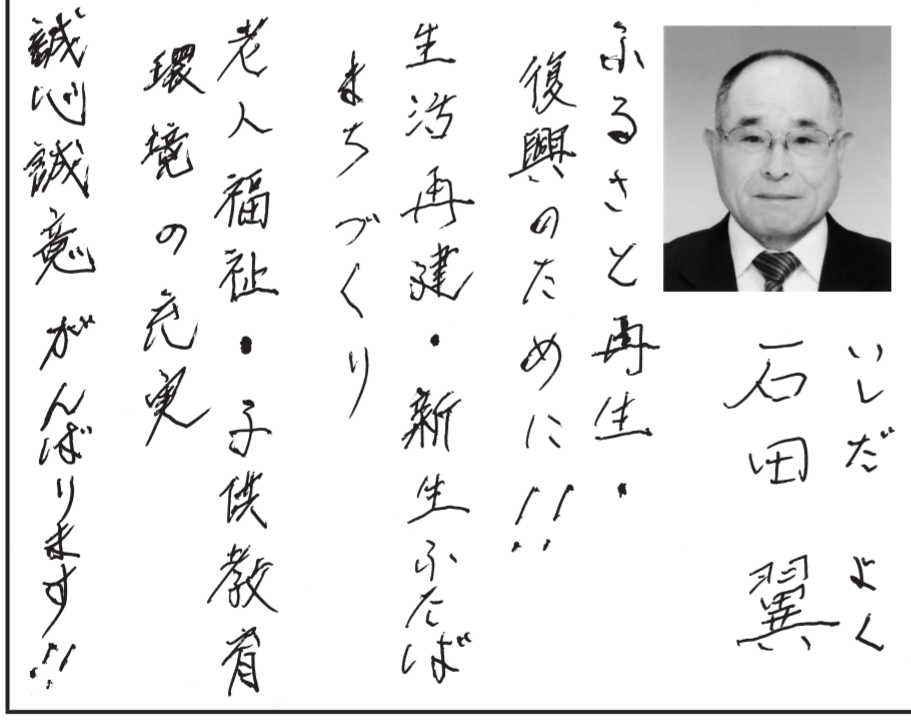 いしだ よく
石田 翼
ふるさと再生・
復興のために!!
生活再建・新生ふたば
まちづくり
老人福祉・子供教育
環境の充実
誠心誠意がんばります!!